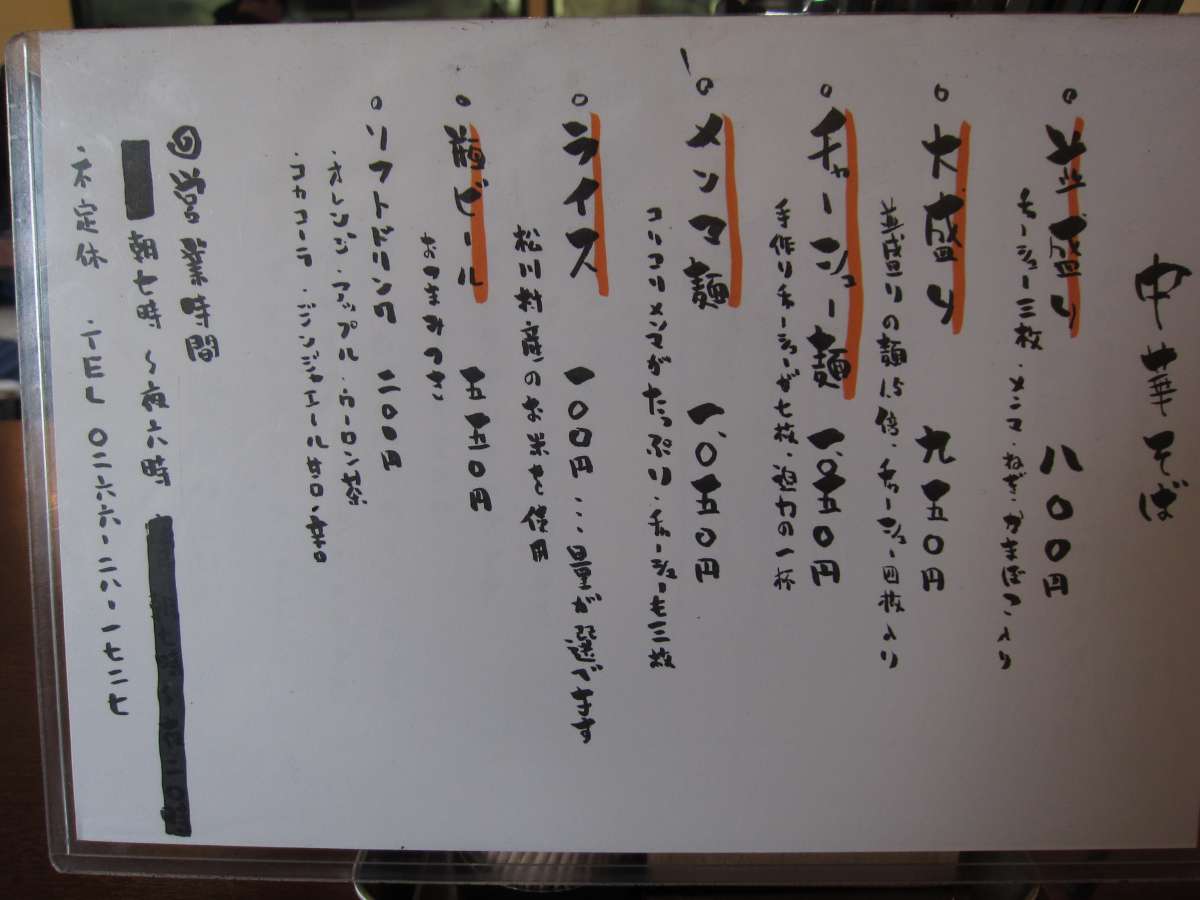 中華そば
並盛り 八〇〇円
チャーシュー三枚・メンマ・ねぎ・かまぼこ入り
大盛り 九五〇円
並盛りの麺1.5倍・チャーシュー四枚入り
チャーシュー麺 一、〇五〇円
手作りチャーシューが七枚・迫力の一杯
メンマ麺 一、〇五〇円
コリコリメンマがたっぷり・チャーシューも三枚
ライス 一〇〇円…量が選べます
松川村産のお米を使用
瓶ビール 五五〇円
おつまみつき
ソフトドリンク 二〇〇円
・オレンジ・アップル・ウーロン茶
・コカコーラ・ジンジャエール甘口・辛口
回営業時間
朝七時〜夜六時
不定休 TEL 〇二六六-二八-一七二七